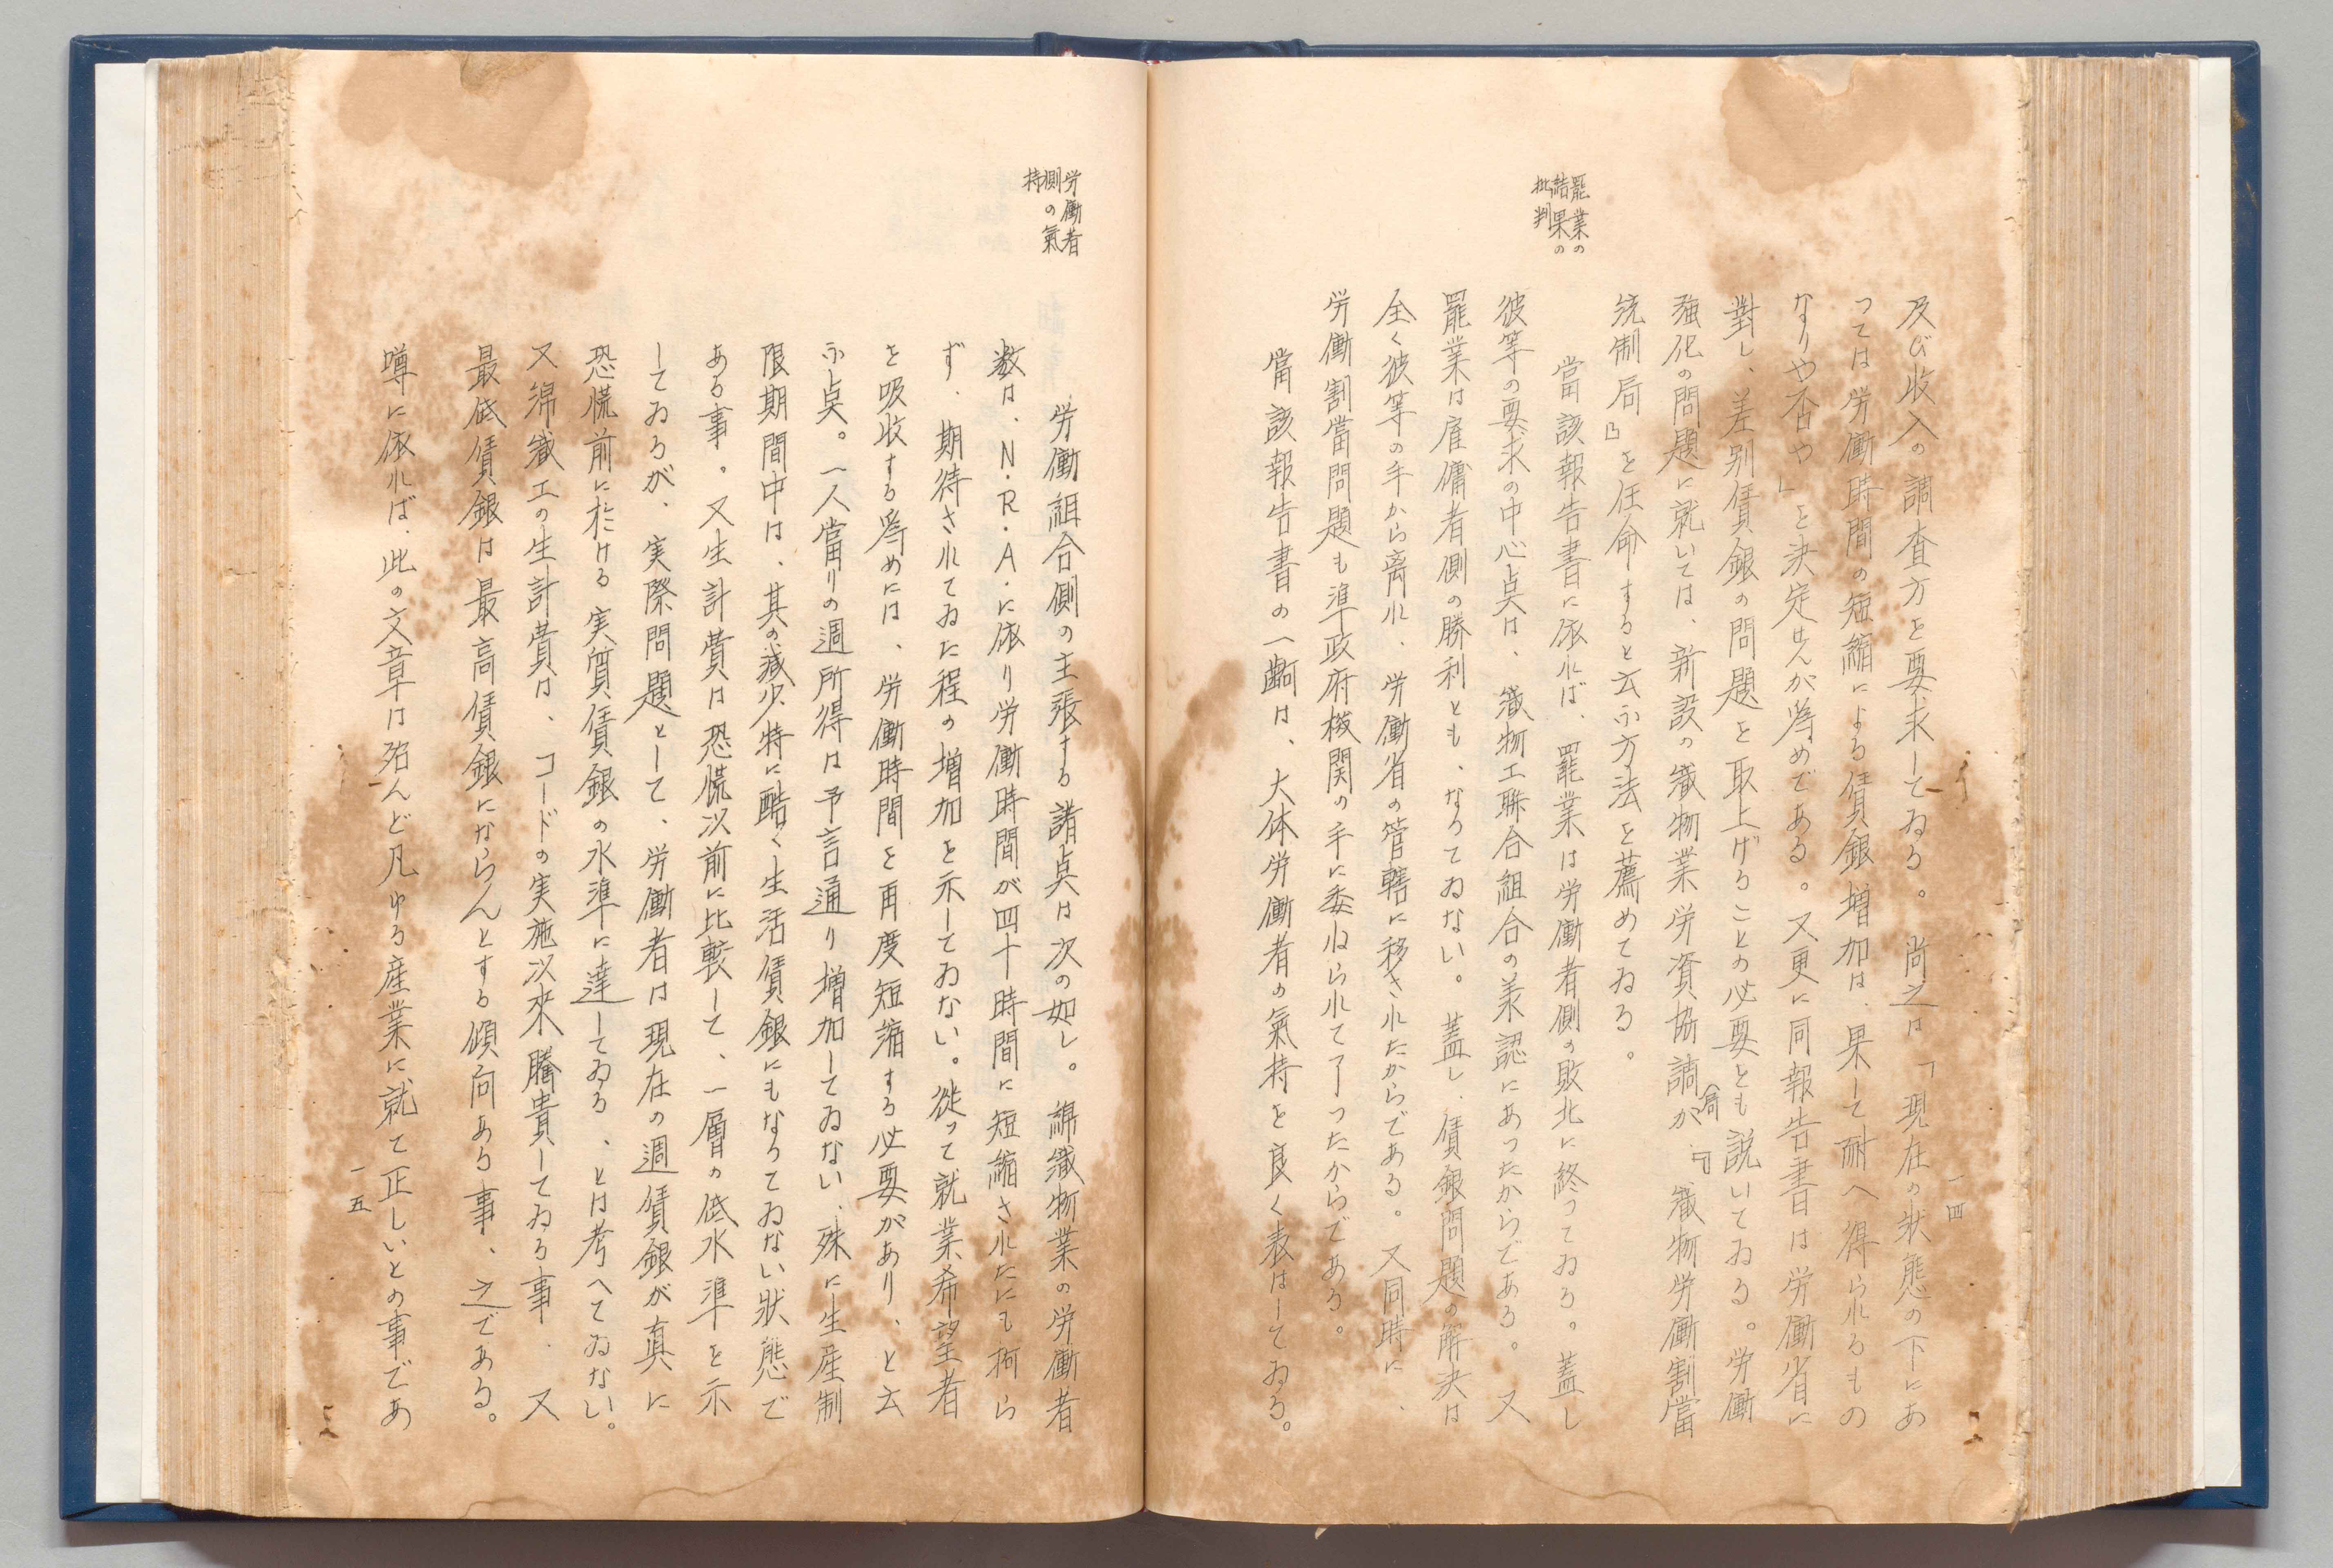 一四
及び收入の調査方を要求してゐる。尚之は「現在の狀態の下にあ
つては労働時間の短縮による賃銀増加は、果して耐へ得られるもの
なりや否や」を決定せんが爲めである。又更に同報告書は労働省に
對し、差別賃銀の問題を取上げることの必要とも説いてゐる。労働
強化の問題に就いては、新設の織物業労資協調局が、『織物労働割當
統制局』を任命すると云ふ方法を薦めてゐる。
罷業の
結果の
批判
當該報告書に依れば、罷業は労働者側の敗北に終つてゐる。蓋し
彼等の要求の中心点は、織物工聯合組合の承認にあつたからである。又
罷業は雇傭者側の勝利とも、なつてゐない。蓋し、賃銀問題の解決は
全く彼等の手から离れ、労働省の管轄に移されたからである。又同時に、
労働割當問題も準政府機関の手に委ねられて了つたからである。
當該報告書の一齣は、大体労働者の氣持を良く表はしてゐる。
労働者
側の氣
持
労働組合側の主張する諸点は次の如し。綿織物業の労働者
数は、N.R.A.に依り労働時間が四十時間に短縮されたにも拘ら
ず、期待されてゐた程の増加を示してゐない。從つて就業希望者
を吸收する爲めには、労働時間を再度短縮する必要があり、と云
ふ点。一人當りの週所得は予言通り増加してゐない、殊に生産制
限期間中は、其の減少特に酷く生活賃銀にもなつてゐない狀態で
ある事。又生計費は恐慌以前に比較して、一層の低水準を示
してゐるが、実際問題として、労働者は現在の週賃銀が真に
恐慌前に於ける実質賃銀の水準に達してゐる、とは考へてゐない。
又綿織工の生計費は、コードの実施以來騰貴してゐる事、又
最低賃銀は最高賃銀にならんとする傾向ある事、之である。
噂に依れば、此の文章は殆んど凡ゆる産業に就て正しいとの事であ
一五